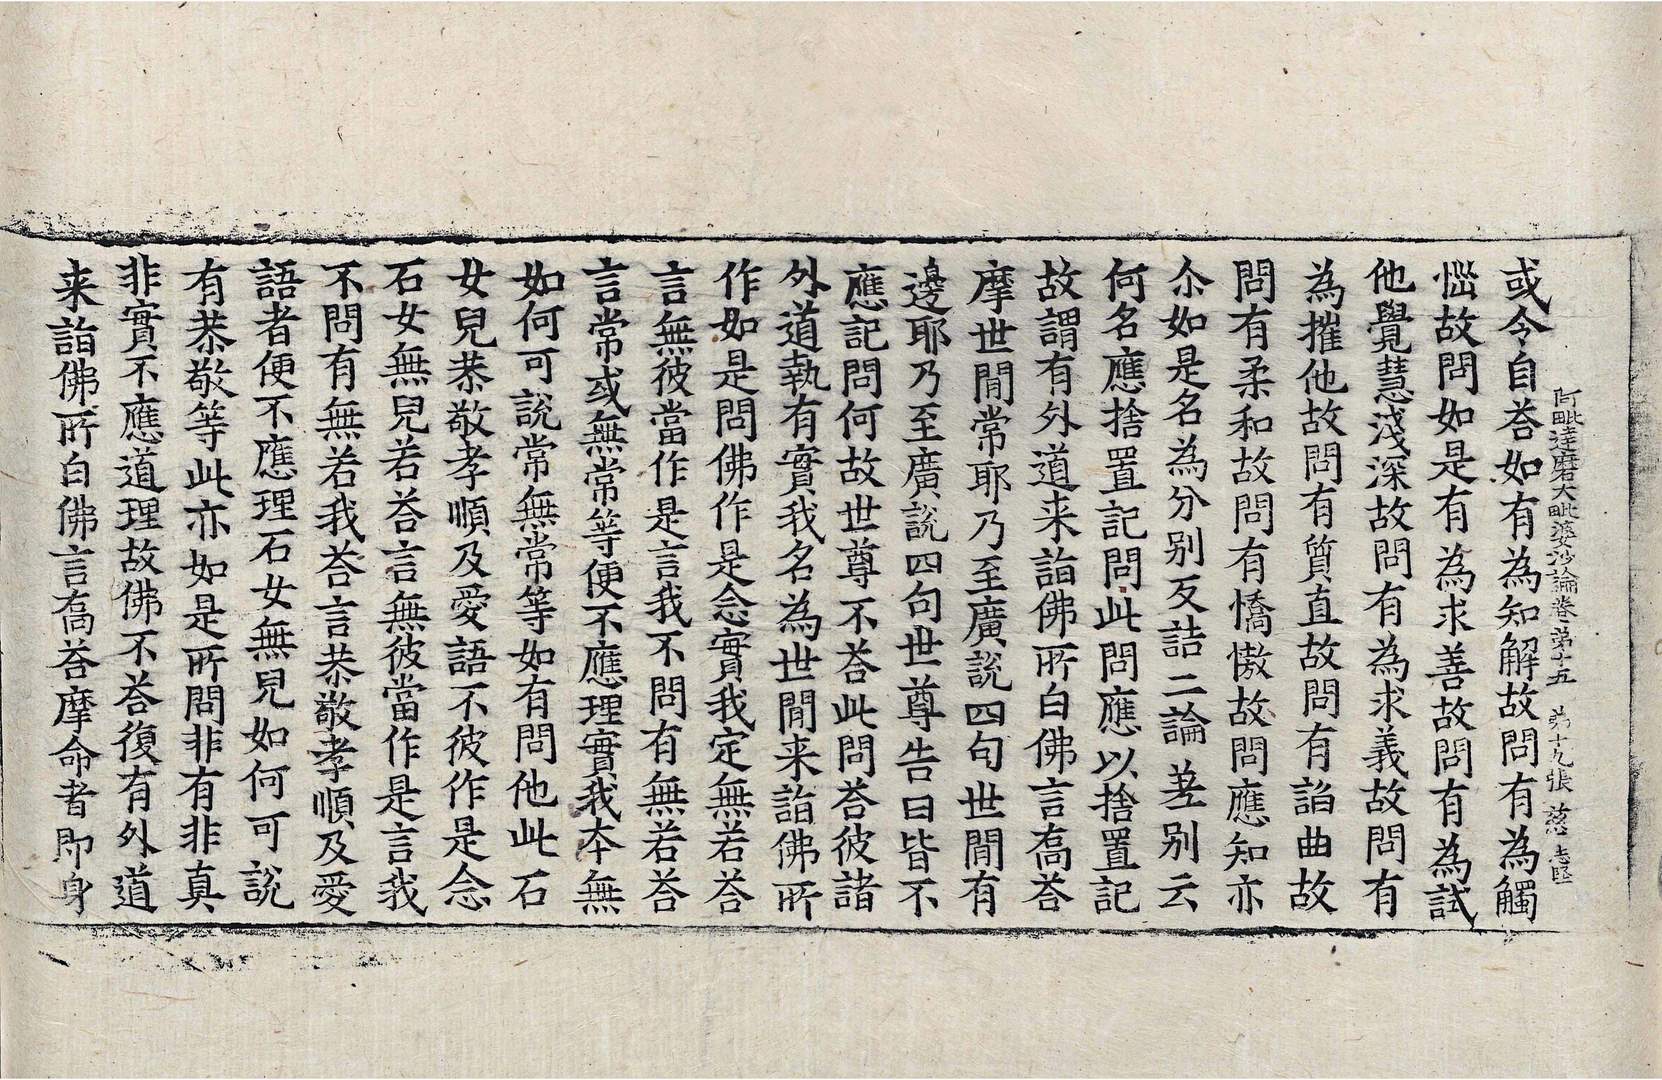 阿毗達磨大毗婆沙論卷第十五　第十九張　慈　志堅
或令自荅如有為知解故問有為觸
惱故問如是有為求善故問有為試
他覺慧淺深故問有為求義故問有
為摧他故問有質直故問有諂曲故
問有柔和故問有憍慠故問應知亦
尒如是名為分别反詰二論差别云
何名應捨置記問此問應以捨置記
故謂有外道来詣佛所白佛言喬荅
摩世閒常耶乃至廣說四句世閒有
邊耶乃至廣說四句世尊告曰皆不
應記問何故世尊不荅此問荅彼諸
外道執有實我名為世閒来詣佛所
作如是問佛作是念實我定無若荅
言無彼當作是言我不問有無若荅
言常或無常等便不應理實我本無
如何可說常無常等如有問他此石
女兒恭敬孝順及愛語不彼作是念
石女無兒若荅言無彼當作是言我
不問有無若我荅言恭敬孝順及愛
語者便不應理石女無兒如何可說
有恭敬等此亦如是所問非有非真
非實不應道理故佛不荅復有外道
来詣佛所白佛言喬荅摩命者即身